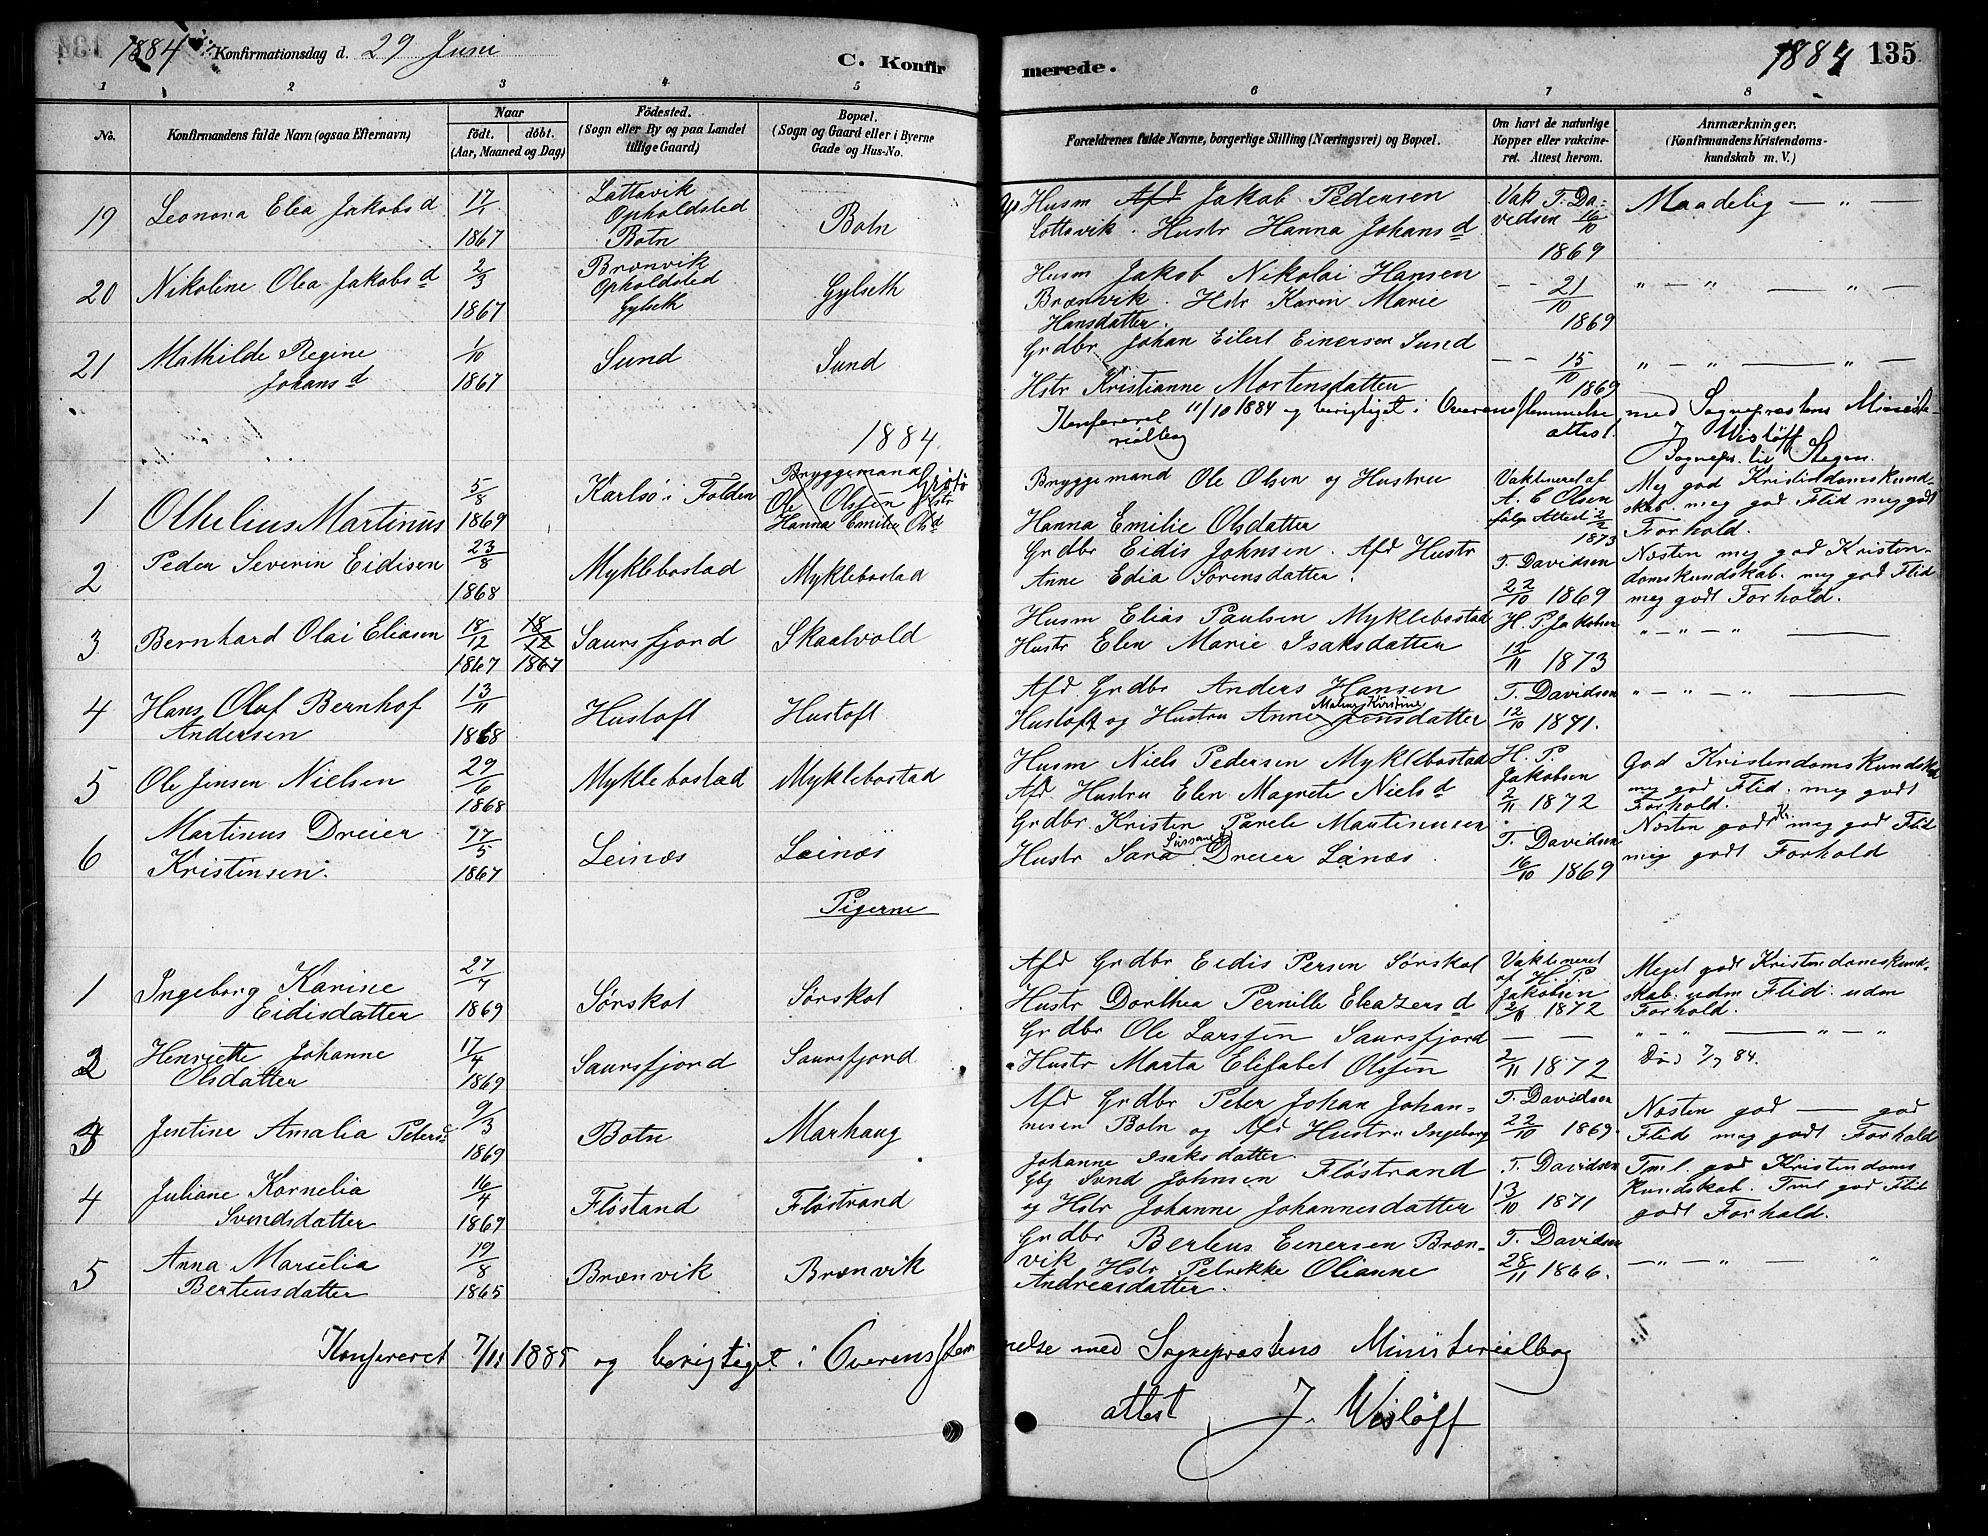 1884 Konfirmationsdag d. 29 Juni C. Konfirmerede. 1884 135
1 2 3 4 5 6 7 8
No.
Konfirmandens fulde Navn (ogsaa Efternavn)
Naar
födt. döbt.
(Aar, Maaned og Dag)
Födested.
(Sogn eller By og paa Landet
tillige Gaard)
Bopæl.
(Sogn og Gaard eller i Byerne
Gade og Hus-No.
Forældrenes fulde Navne, borgerlige Stilling (Næringsvei) og Bopæl.
Om havt de naturlige
Kopper eller vakcine-
ret. Attest herom.
Anmærkninger.
(Konfirmandens Kristendoms-
kundskab m. V.)
19 Leonora Elea Jakobsd
17/1
1867
Lattavik
Opholdsted
Botn
Botn
Husm Afd Jakob Pedersen
Lottavik. Hustr Hanna Johansd
Vak T. Da-
vidsen 16/10
1869
Maadelig — " —
20 Nikoline Olea Jakobsd
2/3
1867
Brænvik
Opholdsted
Gylseth
Gylseth
Husm Jakob Nikolai Hansen
Brænvik. Hstr Karen Marie
Hansdatter.
- - 21/10
1869
" — " — " —
21 Mathilde Regine
Johansd
1/10
1867
Sund
Sund
Grdbr Johan Eilert Einersen Sund
Hstr Kristianne Mortensdatter
— - 15/10
1869
" — " — " —
Konfereret 11/10 1884 og berigtiget i Overensstemmelse med Sognepræstens Ministe-
rialbog attest. J Wisløff
Sognepr. til Stegen
1884.
1 Othelius Martinus
5/8
1869
Karlsö i Folden
Bryggemand
Ole Olssen Hstr
Hanna Emilie Olsd
Grötö
Bryggemand Ole Olsen og Hustru
Hanna Emilie Olsdatter
Vaktineret af
A. C Olsen
følge Attest 2/2
1873
Meg god Kristendomskund-
skab. meg god Flid meg godt
Forhold.
2 Peder Severin Eidisen
23/8
1868
Myklebostad
Myklebostad
Grdbr Eidis Johnsen. Afd Hustr
Anne Edia Sorensdatter.
T. Davidsen
22/10 1869
Næsten meg god Kristen-
domskundskab. meg god Flid
meg godt Forhold.
3 Bernhard Olai Eliasen
18/12
1867
18/12
1867
Saursfjord
Skaalvold
Husm Elias Paulsen Myklebostad
Hustr Elen Marie Isaksdatter
H. P. Jakobsen
12/11 1873
" — " — " —
4 Hans Oluf Bernhof
Andersen
13/11
1868
Hustoft
Hustoft
Afd Grdbr Anders Hansen
Hustoft og Hustru Anne Malene Kirstine Jensdatter
T. Davidsen
12/10 1871.
" — " — " —
5 Ole Jensen Nielsen
29/6
1868
Myklebostad
Myklebostad
Husm Niels Pedersen Myklebostad
Afd Hustru Elen Magrete Nielsd
H. P.
Jakobsen
2/11 1872
God Kristendomskundskab
meg god Flid. meg godt
Forhold.
6 Martinus Dreier
Kristensen.
17/5
1867
Leinæs
Leinæs
Grdbr Kristen Parele Martinusen
Hustr Sara Sussanna Dreier Leinæs.
T. Davidsen
16/10 1869
Næsten godt Kr. meg god Flid
meg godt Forhold
Pigerne
1 Ingeborg Karine
Eidisdatter
27/7
1869
Sørskot
Sørskot
Afd Grdbr Eidis Persen Sørskot
Hustr Dorthea Pernille Eleazersd
Vaktineret
af H. P.
Jakobsen
2/11 1872
Meget godt Kristendomskund-
skab. udm Flid. udm
Forhold.
2 Henriette Johanne
Olsdatter
17/4
1869
Saursfjord
Saursfjord
Grdbr Ole Larssen Saursfjord
Hustr Marta Elisabet Olssen
— —
2/11 1872
" - " — " — "
Død 7/7 84.
3 Jentine Amalia Petersd
9/3
1869
Botn
Marhaug
Afd Grdbr Peter Johan Johan-
nesen Botn og Afd Hustru Ingeborg
Johanne Isaksdatter.
T. Davidsen
22/10 1869.
Næsten god — god
Flid meg godt Forhold
4 Juliane Kornelia
Svendsdatter
16/4
1869
Fløstand
Fløstrand
Gbr Svend Johnsen Fløstrand
og Hstr Johanne Johannesdatter
T. Davidsen
13/10 1871
Tml. god Kristendoms
kundskab. Tml god Flid
godt Forhold.
5 Anna Marselia
Bertensdatter
19/8
1865
Brænvik
Brænvik
Grdbr Berteus Einersen Bræn-
vik Hstr Petrikke Olianne
Andreasdatter.
T. Davidsen
28/11 1866.
— " — " — "
Konfereret 7/11 1885 og berigtiget i Overensstemmelse med Sognepræstens Ministerialbog
attest J. Wisløff